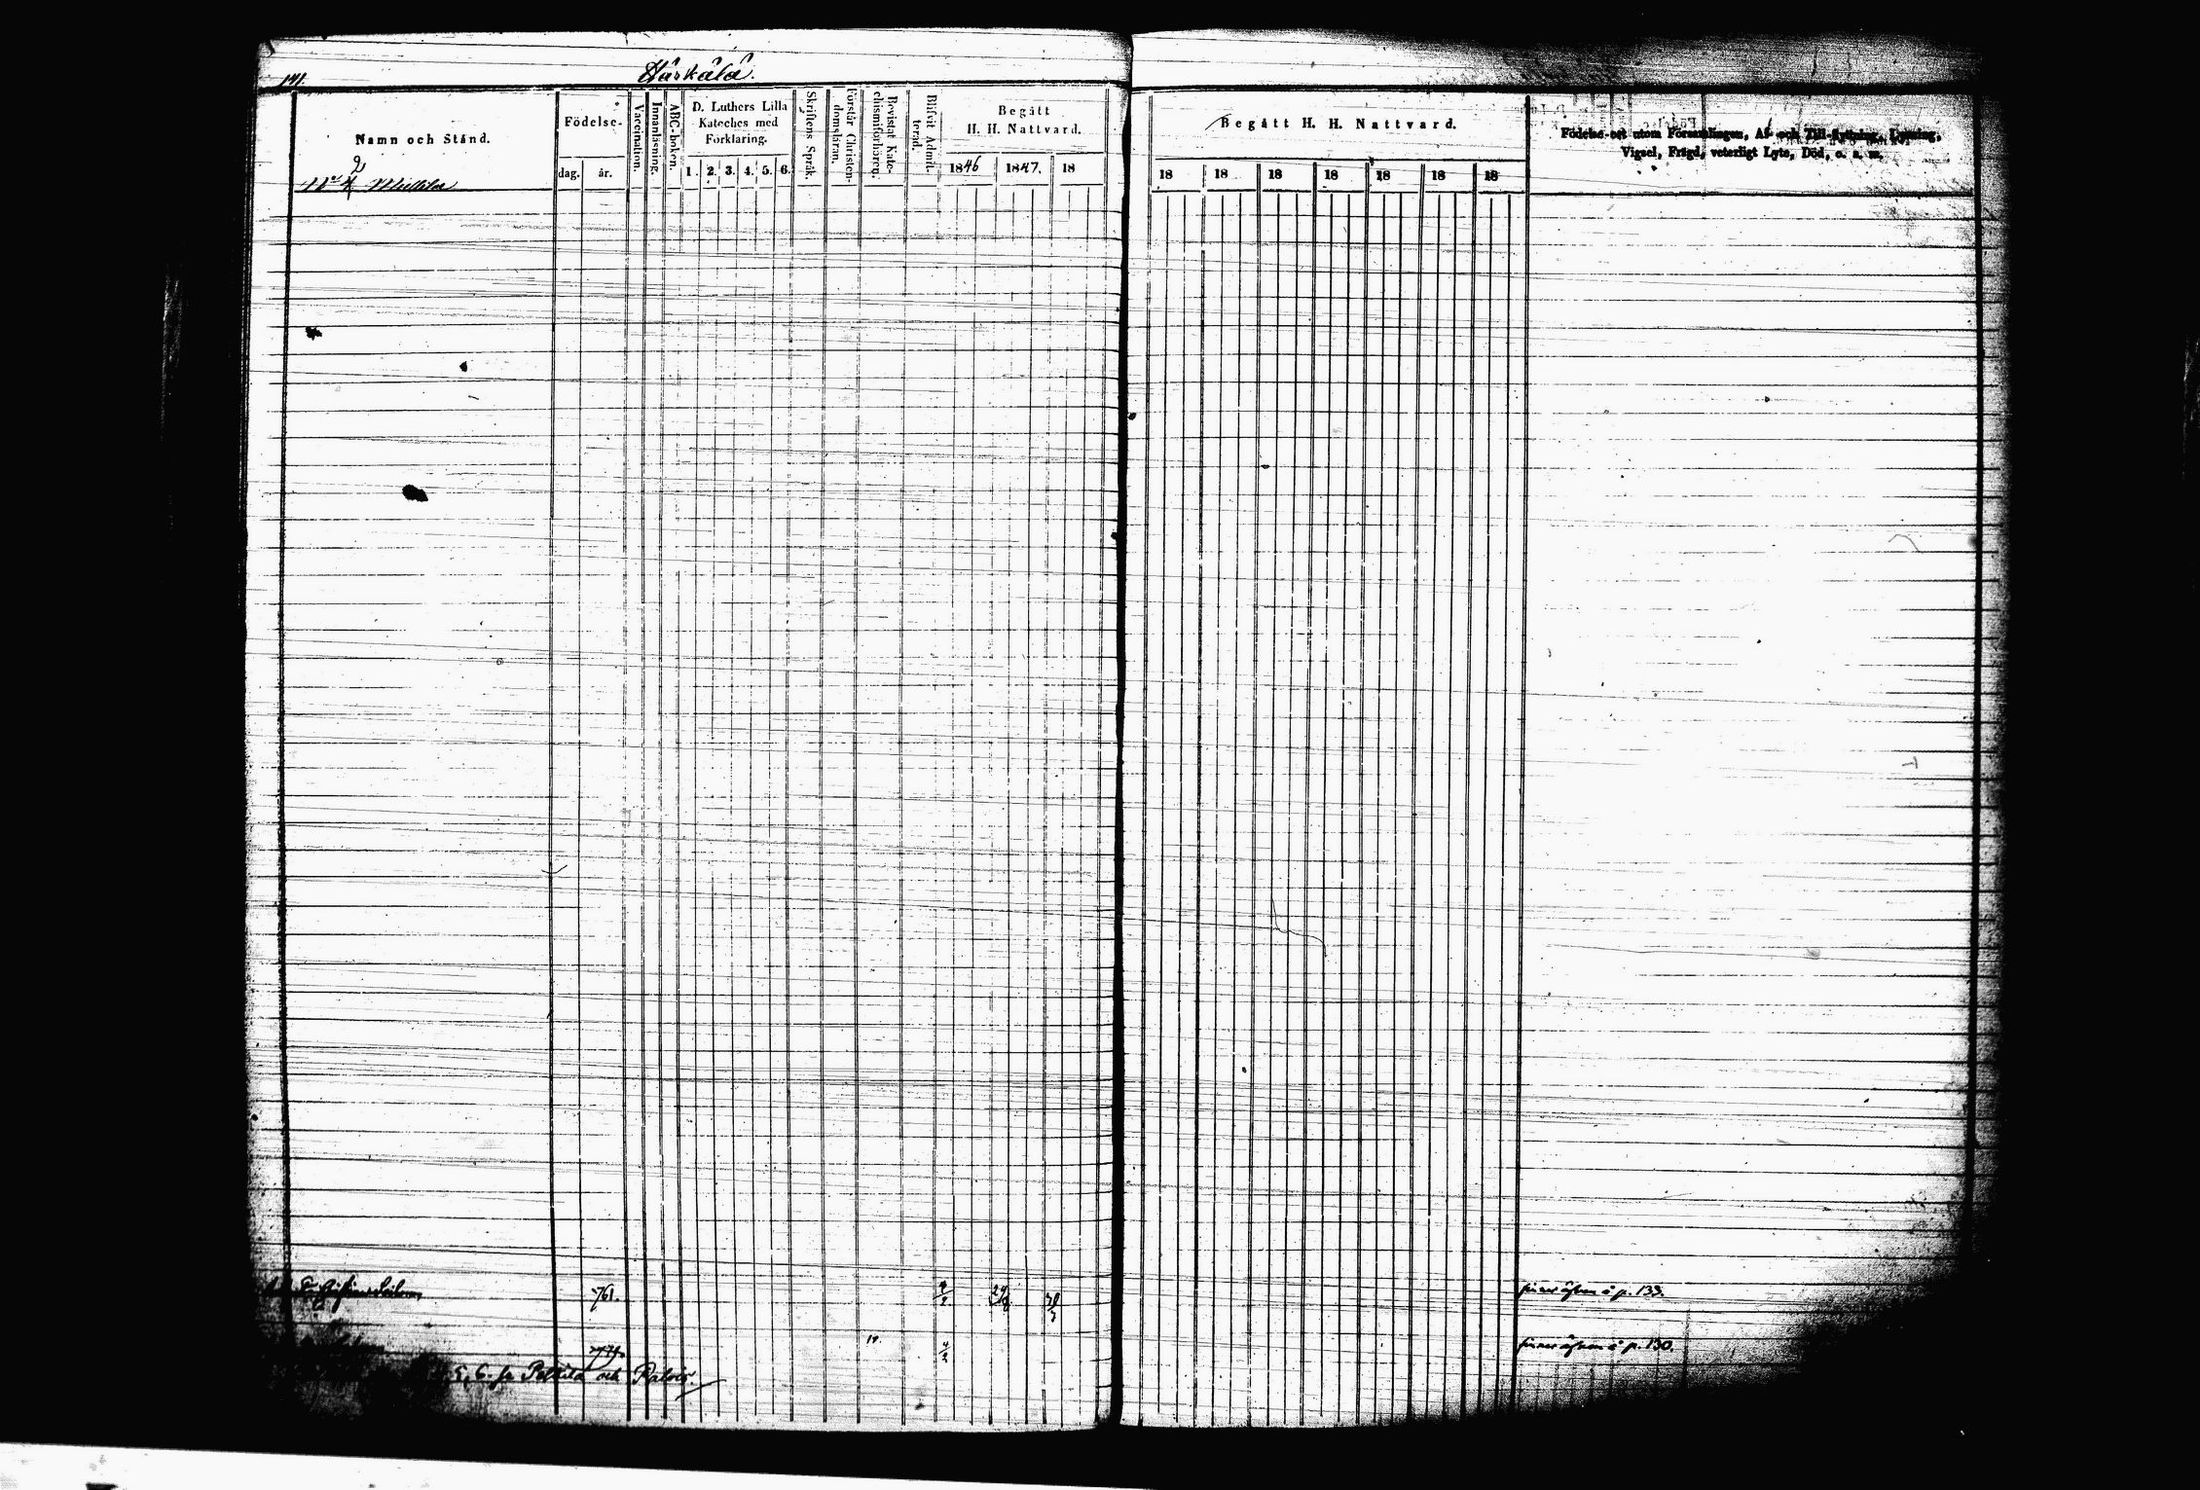 141.
Härkälä.
Namn och Stånd.
Födelse-
dag. år.
Vaccination.
Innanläsning.
ABC-boken.
D. Luthers Lilla
Kateches med
Förklaring.
1. 2. 3. 4. 5. 6.
Skriftens Språk.
Förstår Christen-
domsläran.
Bevistat Kate-
chismiförhören.
Blifvit Admit-
terad.
Begått
H. H. Nattvard.
1846 1847. 18
Begått H. H. Nattvard.
18 18 18 18 18 18 18
Födelse-ort utom Församlingen, Af- och Till-flyttning, Lysning,
Vigsel, Frägd, veterligt Lyte, Död, o. s. m.
2
761.
finnes äfven å p. 133.
19.
finnes äfven å p. 130.
och